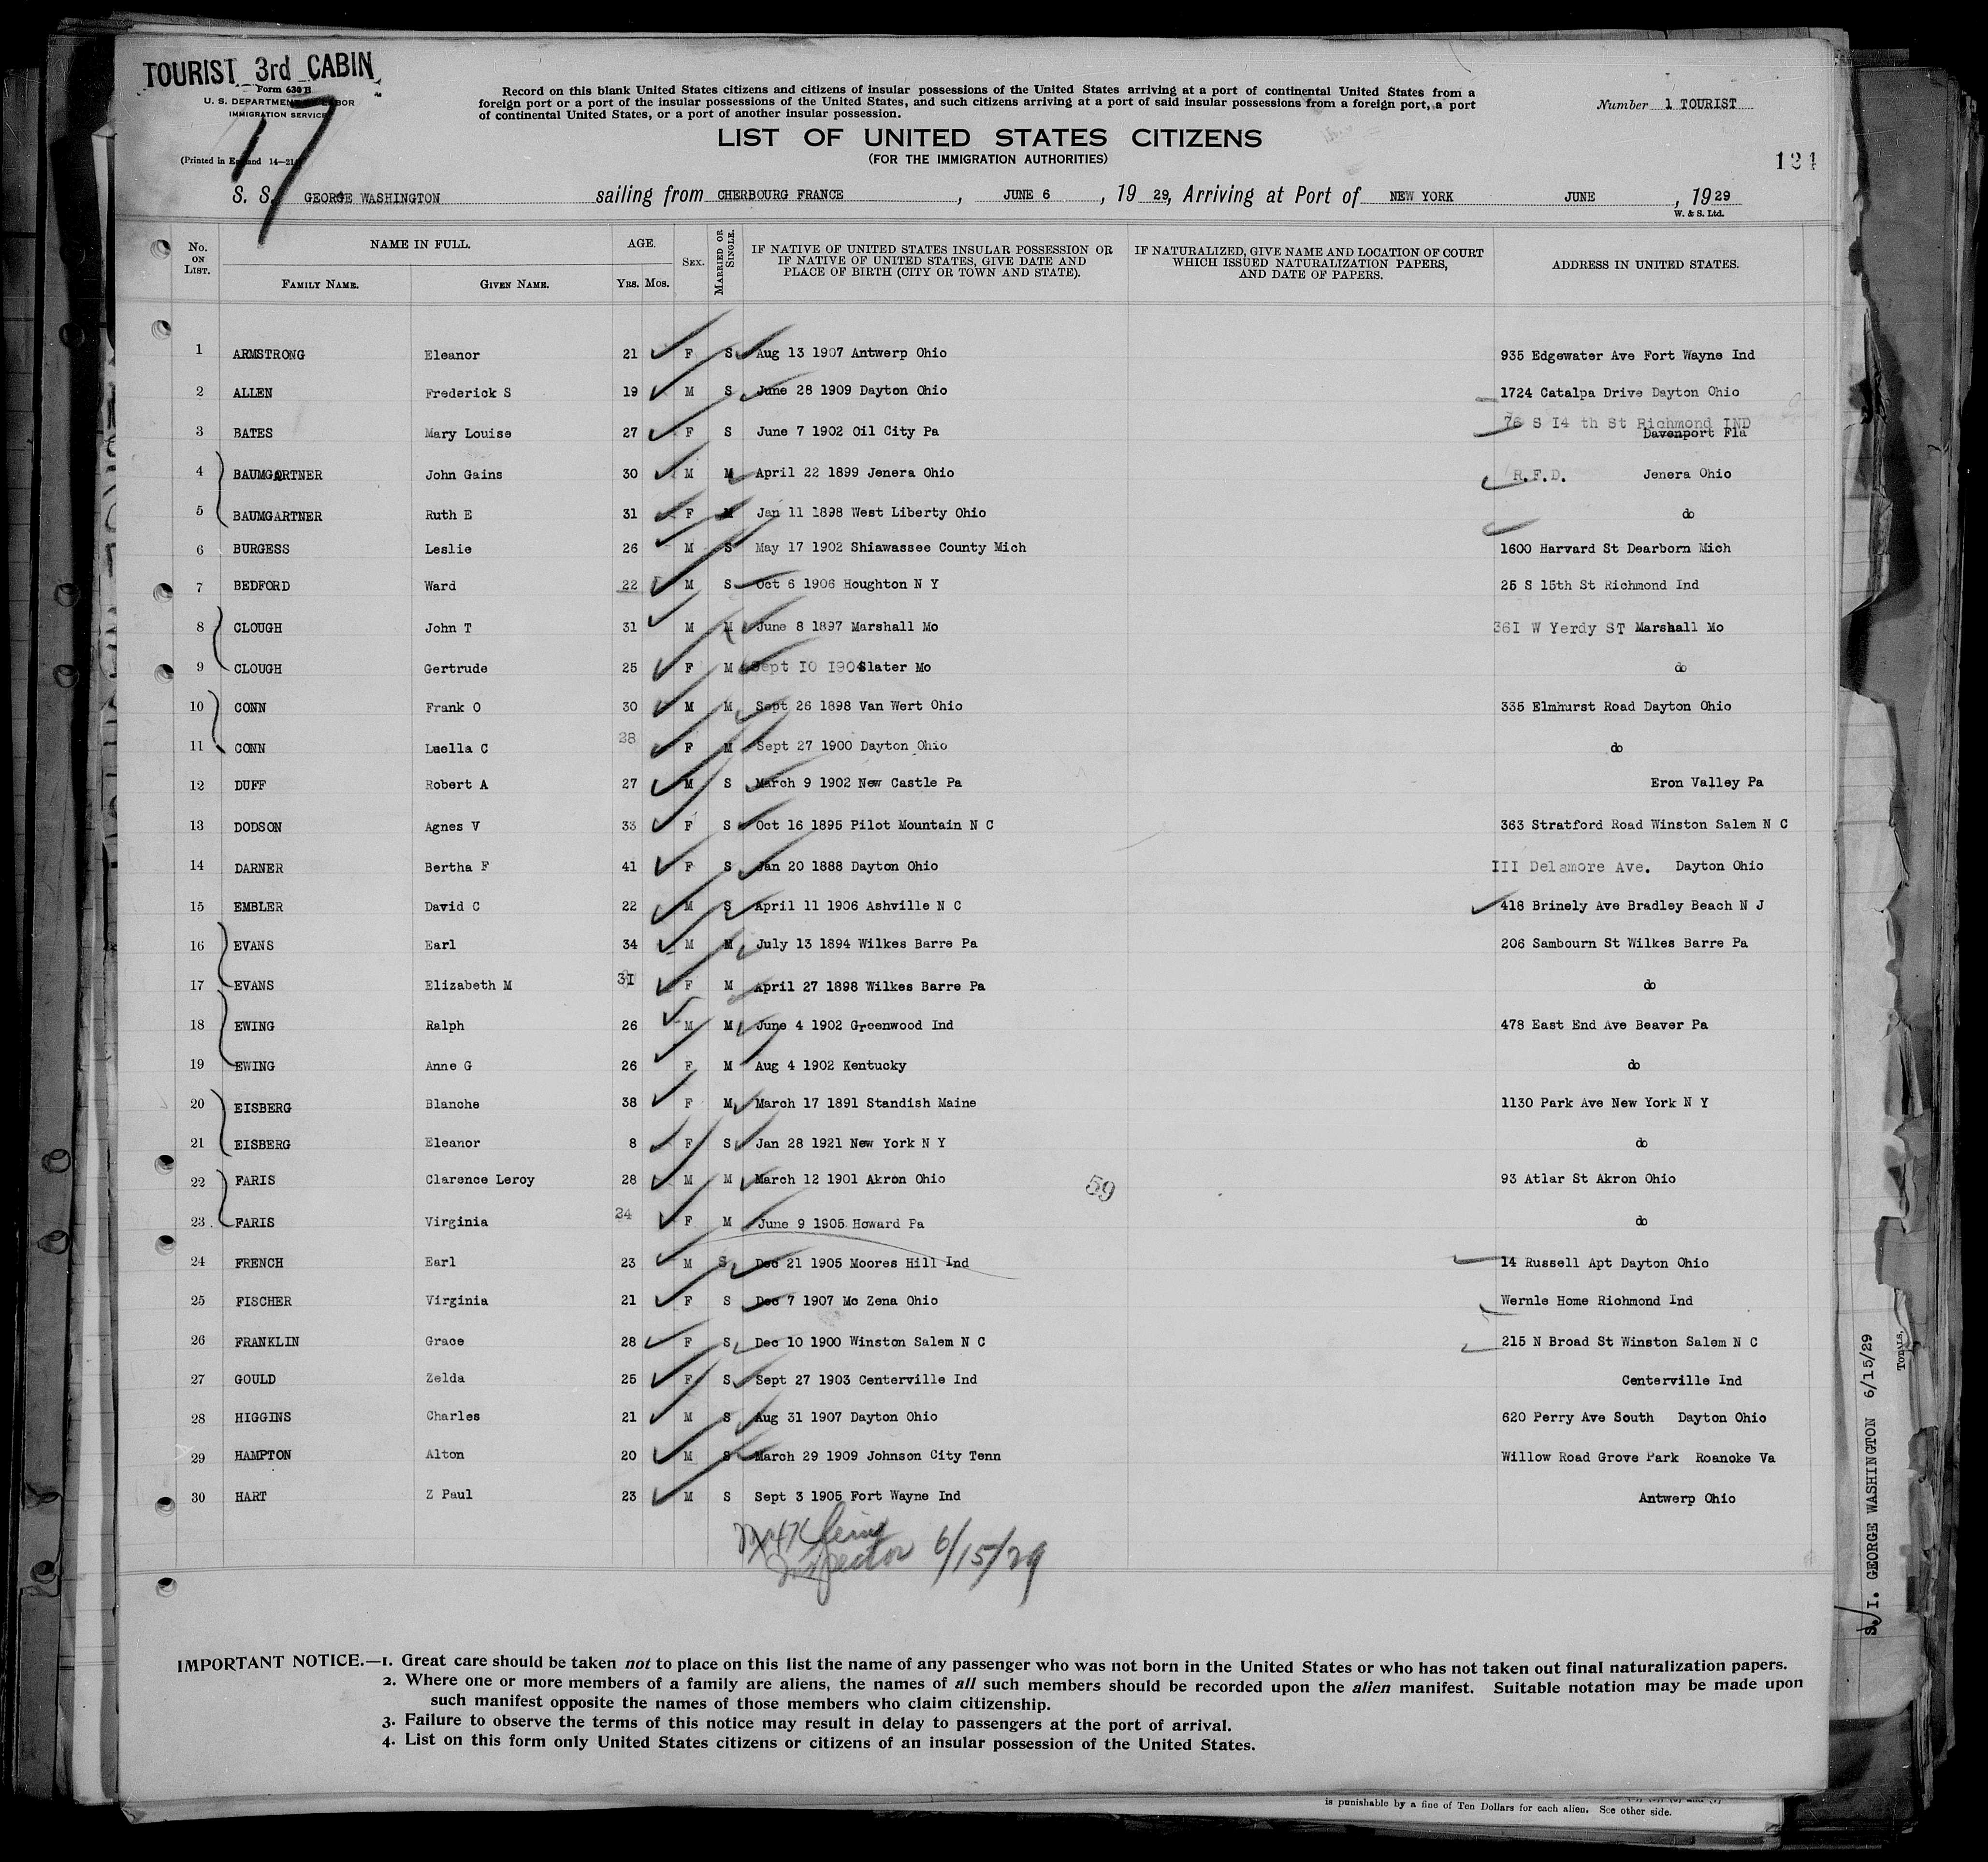 TOURIST 3rd CABIN
Form 630 B
U. S. DEPARTMENT OF LABOR
IMMIGRATION SERVICE
(Printed in England 14—21
17
Record on this blank United States citizens and citizens of insular possessions of the United States arriving at a port of continental United States from a
foreign port or a port of the insular possessions of the United States, and such citizens arriving at a port of said insular possessions from a foreign port, a port
of continental United States, or a port of another insular possession.
Number 1 TOURIST
LIST OF UNITED STATES CITIZENS
(FOR THE IMMIGRATION AUTHORITIES)
124
S. S. GEORGE WASHINGTON sailing from CHERBOURG FRANCE , JUNE 6 , 19 29, Arriving at Port of NEW YORK JUNE , 19 29
W. & S. Ltd.
No. ON LIST. NAME IN FULL. FAMILY NAME. GIVEN NAME. AGE. YRS. MOS. SEX. MARRIED OR SINGLE. IF NATIVE OF UNITED STATES INSULAR POSSESSION OR IF NATIVE OF UNITED STATES, GIVE DATE AND PLACE OF BIRTH (CITY OR TOWN AND STATE). IF NATURALIZED, GIVE NAME AND LOCATION OF COURT WHICH ISSUED NATURALIZATION PAPERS, AND DATE OF PAPERS. ADDRESS IN UNITED STATES.
1 ARMSTRONG Eleanor 21 F S Aug 13 1907 Antwerp Ohio 935 Edgewater Ave Fort Wayne Ind
2 ALLEN Frederick S 19 M S June 28 1909 Dayton Ohio 1724 Catalpa Drive Dayton Ohio
3 BATES Mary Louise 27 F S June 7 1902 Oil City Pa 76 S I4 th St Richmond IND
Davenport Fla
4 BAUMGARTNER John Gains 30 M M April 22 1899 Jenera Ohio R.F.D. Jenera Ohio
5 BAUMGARTNER Ruth E 31 F M Jan 11 1898 West Liberty Ohio do
6 BURGESS Leslie 26 M S May 17 1902 Shiawassee County Mich 1600 Harvard St Dearborn Mich
7 BEDFORD Ward 22 M S Oct 6 1906 Houghton N Y 25 S 15th St Richmond Ind
8 CLOUGH John T 31 M M June 8 1897 Marshall Mo 36I W Yerdy ST Marshall Mo
9 CLOUGH Gertrude 25 F M Sept I0 I904 Slater Mo do
10 CONN Frank O 30 M M Sept 26 1898 Van Wert Ohio 335 Elmhurst Road Dayton Ohio
11 CONN Luella C 28 F M Sept 27 1900 Dayton Ohio do
12 DUFF Robert A 27 M S March 9 1902 New Castle Pa Eron Valley Pa
13 DODSON Agnes V 33 F S Oct 16 1895 Pilot Mountain N C 363 Stratford Road Winston Salem N C
14 DARNER Bertha F 41 F S Jan 20 1888 Dayton Ohio III Delamore Ave. Dayton Ohio
15 EMBLER David C 22 M S April 11 1906 Ashville N C 418 Brinely Ave Bradley Beach N J
16 EVANS Earl 34 M M July 13 1894 Wilkes Barre Pa 206 Sambourn St Wilkes Barre Pa
17 EVANS Elizabeth M 3I F M April 27 1898 Wilkes Barre Pa do
18 EWING Ralph 26 M M June 4 1902 Greenwood Ind 478 East End Ave Beaver Pa
19 EWING Anne G 26 F M Aug 4 1902 Kentucky do
20 EISBERG Blanche 38 F M March 17 1891 Standish Maine 1130 Park Ave New York N Y
21 EISBERG Eleanor 8 F S Jan 28 1921 New York N Y do
22 FARIS Clarence Leroy 28 M M March 12 1901 Akron Ohio 59 93 Atlar St Akron Ohio
23 FARIS Virginia 24 F M June 9 1905 Howard Pa do
24 FRENCH Earl 23 M S Dec 21 1905 Moores Hill Ind 14 Russell Apt Dayton Ohio
25 FISCHER Virginia 21 F S Dec 7 1907 Mc Zena Ohio Wernle Home Richmond Ind
26 FRANKLIN Grace 28 F S Dec 10 1900 Winston Salem N C 215 N Broad St Winston Salem N C
27 GOULD Zelda 25 F S Sept 27 1903 Centerville Ind Centerville Ind
28 HIGGINS Charles 21 M S Aug 31 1907 Dayton Ohio 620 Perry Ave South Dayton Ohio
29 HAMPTON Alton 20 M S March 29 1909 Johnson City Tenn Willow Road Grove Park Roanoke Va
30 HART Z Paul 23 M S Sept 3 1905 Fort Wayne Ind Antwerp Ohio
Inspector 6/15/29
S. I. GEORGE WASHINGTON 6/15/29
TOTALS.
IMPORTANT NOTICE.—1. Great care should be taken not to place on this list the name of any passenger who was not born in the United States or who has not taken out final naturalization papers.
2. Where one or more members of a family are aliens, the names of all such members should be recorded upon the alien manifest. Suitable notation may be made upon
such manifest opposite the names of those members who claim citizenship.
3. Failure to observe the terms of this notice may result in delay to passengers at the port of arrival.
4. List on this form only United States citizens or citizens of an insular possession of the United States.
is punishable by a fine of Ten Dollars for each alien. See other side.